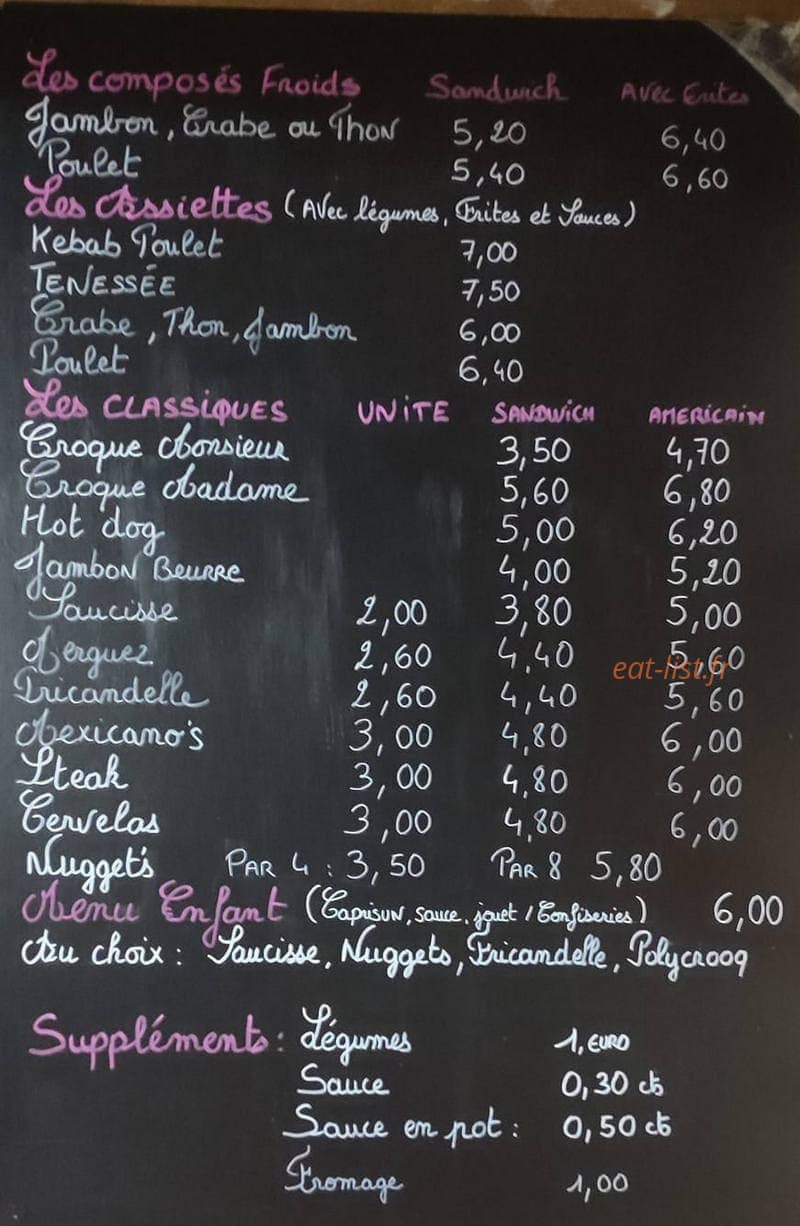 Les composés Froids Sandwich Avec Frites
Jambon, Crabe ou Thon 5,20 6,40
Poulet 5,40 6,60
Les Assiettes (Avec légumes, Frites et Sauces)
Kebab Poulet 7,00
TENESSÉE 7,50
Crabe, Thon, Jambon 6,00
Poulet 6,40
Les CLASSIQUES UNITE SANDWICH AMERICAIN
Croque Monsieur 3,50 4,70
Croque Madame 5,60 6,80
Hot dog 5,00 6,20
Jambon Beurre 4,00 5,20
Saucisse 2,00 3,80 5,00
Merguez 2,60 4,40 5,60
eat-list.fr
Fricandelle 2,60 4,40 5,60
Mexicano's 3,00 4,80 6,00
Steak 3,00 4,80 6,00
Cervelas 3,00 4,80 6,00
Nugget's PAR 4 : 3,50 PAR 8 5,80
Menu Enfant (Caprisun, sauce, jouet / Confiseries) 6,00
Au choix : Saucisse, Nuggets, Fricandelle, Polycrooq
Supplément : Légumes 1, EURO
Sauce 0,30 cts
Sauce en pot : 0,50 cts
Fromage 1,00